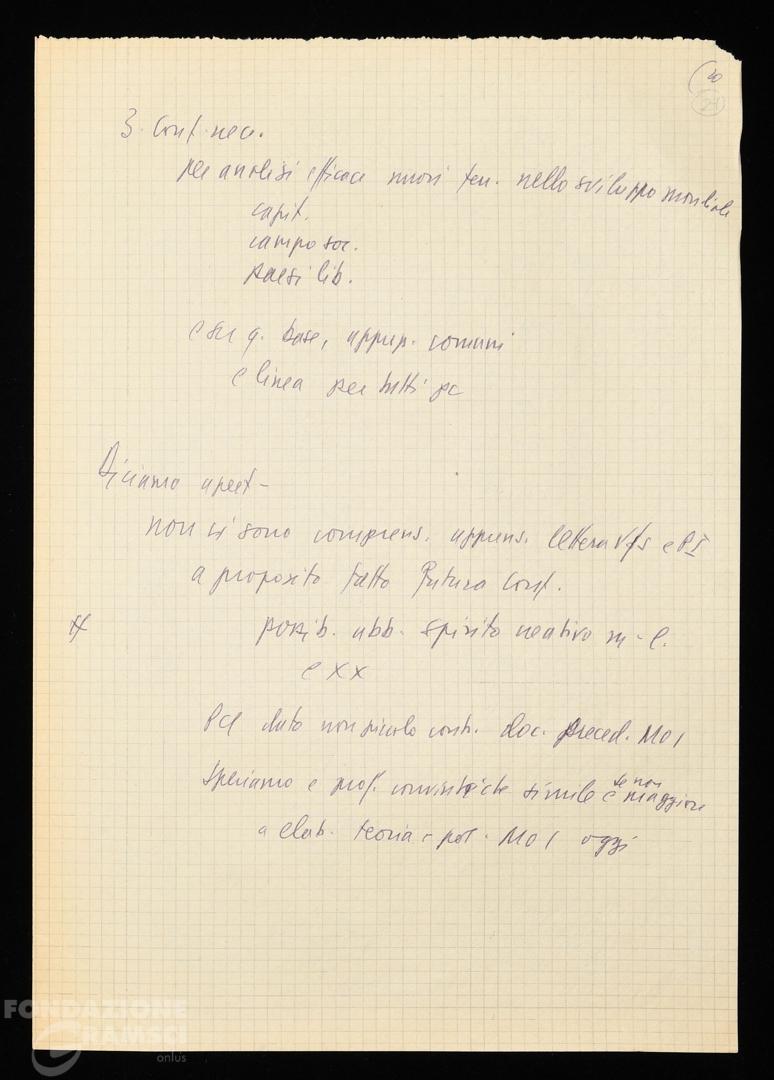 30
24
3. Conf. nec.
per analisi efficace nuovi fen. nello sviluppo mondiale
capit.
campo soc.
paesi lib.
e su q. base, appr. comuni
e linea per tutti pc
Diciamo apert-
non ci sono comprens. apprens. lettera
a proposito fatto futura Conf.
possib. abb. spirito creativo m-l.
e XX
PCI dato non piccolo contr. doc. preced. MOI
se non
Speriamo e prof. convinti che simile e maggiore
a elab. teoria e pol. MOI oggi
FONDAZIONE
GRAMSCI
onlus